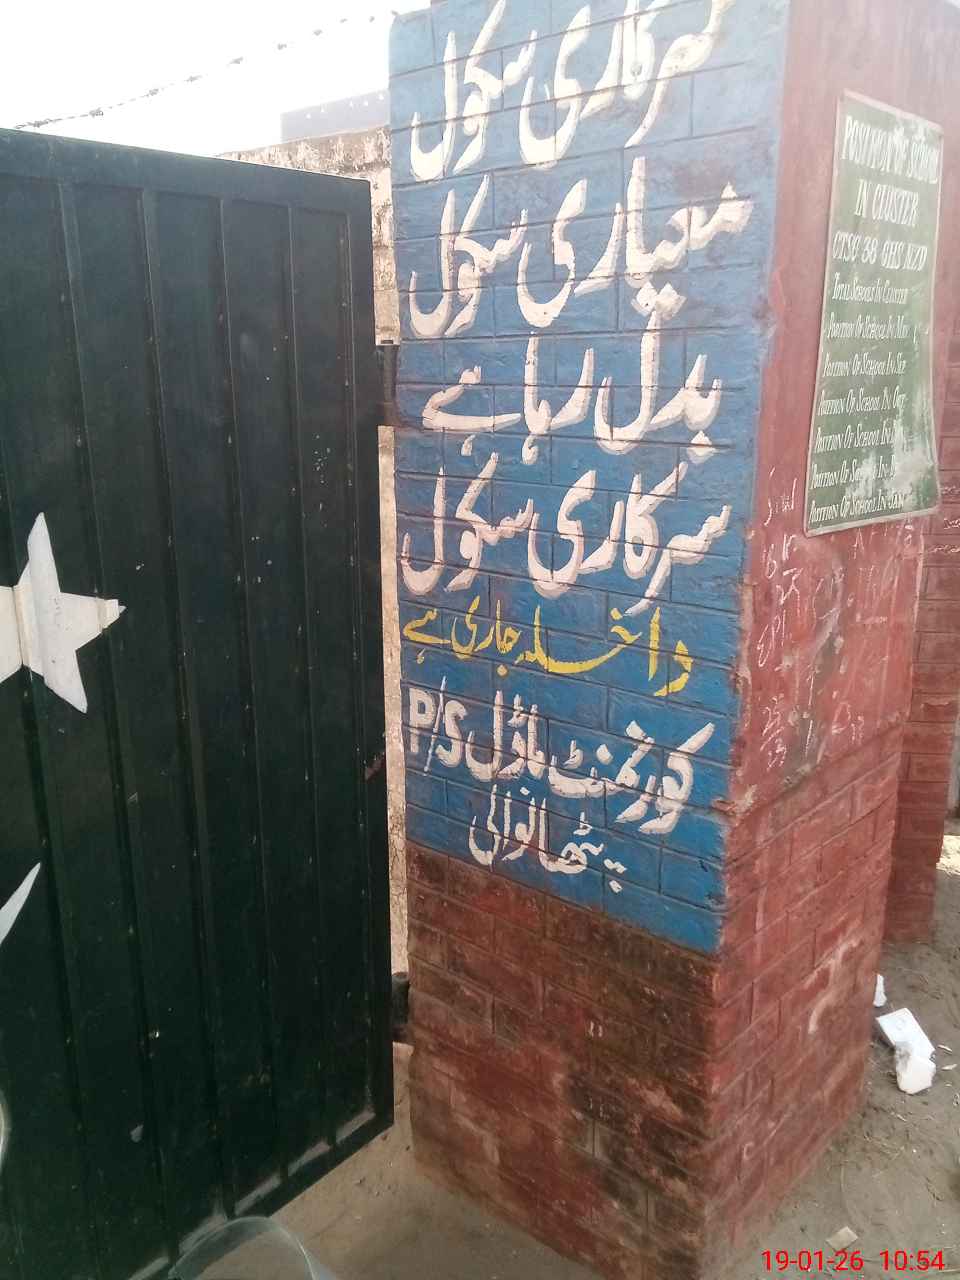 سرکاری سکول
معیاری سکول
بدل رہا ہے
سرکاری سکول
داخلہ جاری ہے
گورنمنٹ ماڈل P/S
پٹھانوالی
POSITION OF SCHOOL
IN CLUSTER
CTSC 38 GHS NZD
TOTAL SCHOOLS IN CLUSTER
POSITION OF SCHOOL IN
POSITION OF SCHOOL IN SEP
POSITION OF SCHOOL IN OCT
POSITION OF SCHOOL IN
POSITION OF SCHOOL IN
POSITION OF SCHOOL IN JAN
19-01-26 10:54